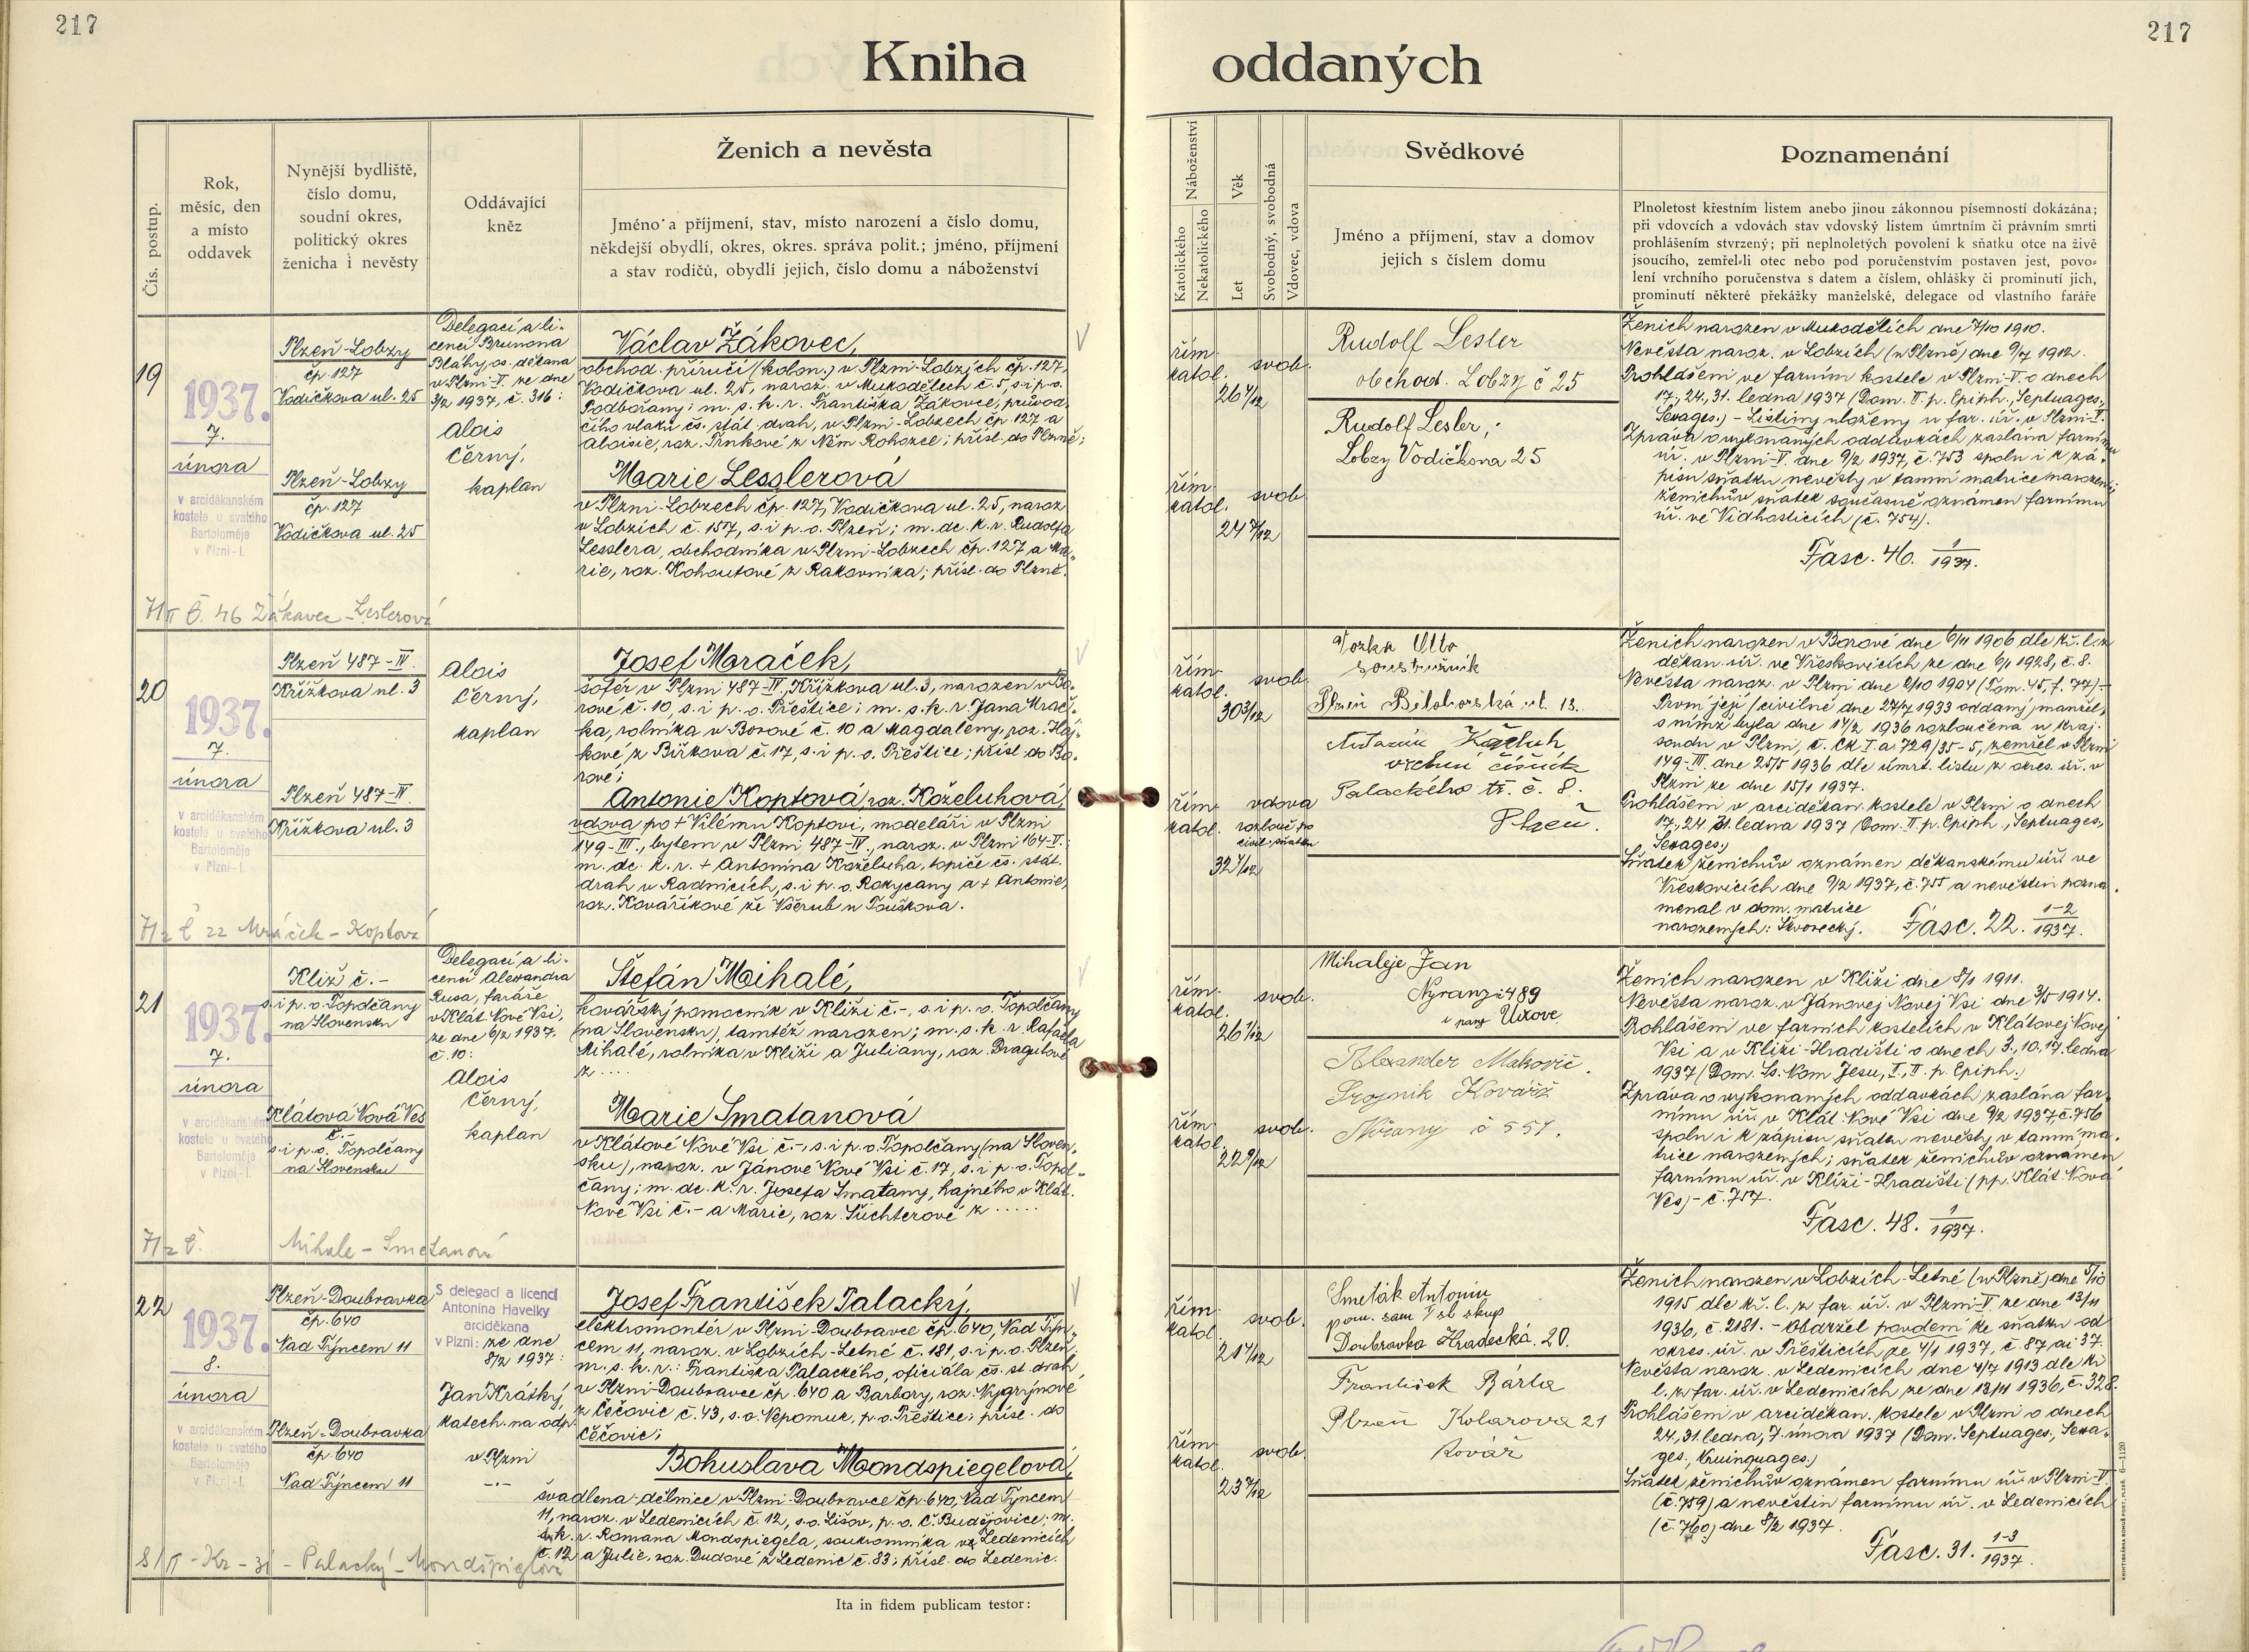 217
217
Kniha oddaných
Čís. postup.
Rok,
měsíc, den
a místo
oddavek
Nynější bydliště,
číslo domu,
soudní okres,
politický okres
ženicha i nevěsty
Oddávající
kněz
Ženich a nevěsta
Jméno a příjmení, stav, místo narození a číslo domu,
někdejší obydlí, okres, okres. správa polit.; jméno, příjmení
a stav rodičů, obydlí jejich, číslo domu a náboženství
Náboženství
Katolického
Nekatolického
Věk
Let
Svobodný, svobodná
Vdovec, vdova
Svědkové
Jméno a příjmení, stav a domov
jejich s číslem domu
Poznamenání
Plnoletost křestním listem anebo jinou zákonnou písemností dokázána;
při vdovcích a vdovách stav vdovský listem úmrtním či právním smrti
prohlášením stvrzený; při neplnoletých povolení k sňatku otce na živě
jsoucího, zemřel-li otec nebo pod poručenstvím postaven jest, povo-
lení vrchního poručenstva s datem a číslem, ohlášky či prominutí jich,
prominutí některé překážky manželské, delegace od vlastního faráře
19
1937.
7.
února
v arciděkanském
kostele u svatého
Bartoloměje
v Plzni-I.
Plzeň-Lobzy
čp. 127
Vodičkova ul. 25
Plzeň-Lobzy
čp. 127
Vodičkova ul. 25
Delegací a li-
cencí Brunona
Bláhy, os. děkana
v Plzni-V. ze dne
3/2 1937, č. 316:
Alois
Černý,
kaplan
Václav Žákovec,
obchod. příručí (kolon.) v Plzni-Lobzích čp. 127,
Vodičkova ul. 25, naroz. v Mukodělech č. 5, s. i p. o.
Podbořany; m. s. k. r. Františka Žákovce, průvod-
čího vlaků čs. stát. drah, v Plzni-Lobzech čp. 127 a
Aloisie, roz. Trnkové z Něm. Rohozce; přísl. do Plzně;
Marie Lesslerová
v Plzni-Lobzech čp. 127, Vodičkova ul. 25, naroz.
v Lobzích č. 157, s. i p. o. Plzeň; m. dc. k. r. Rudolfa
Lesslera, obchodníka v Plzni-Lobzech čp. 127 a Ma-
rie, roz. Kohoutové z Rakovníka; přísl. do Plzně.
7/II Č. 46 Žákavec - Leslerová
řím.
katol.
26 4/12
svob.
řím.
katol.
24 7/12
svob.
Rudolf Lesler
obchod. Lobzy č 25
Rudolf Lesler,
Lobzy Vodičkova 25
Ženich narozen v Mukodělích dne 7/10 1910.
Nevěsta naroz. v Lobzích (u Plzně) dne 9/7 1912.
Prohlášeni ve farním kostele v Plzni-V. o dnech
17., 24., 31. ledna 1937 (Dom. II. p. Epiph., Septuages.,
Sexages.) - Listiny uloženy u far. úř. v Plzni-V.
Zpráva o vykonaných oddavkách zaslána farnímu
úř. v Plzni-V. dne 9/2 1937, č. 753 spolu i k zá-
pisu sňatku nevěsty v tamní matrice narození;
ženichův sňatek současně oznámen farnímu
úř. ve Vidhosticích (č. 754).
Fasc. 46. 1/1937.
20
1937.
7.
února
v arciděkanském
kostele u svatého
Bartoloměje
v Plzni-I.
Plzeň 487-IV.
Křížkova ul. 3
Plzeň 487-IV.
Křížkova ul. 3
Alois
Černý,
kaplan
Josef Mraček,
šofér v Plzni 487-IV., Křížkova ul. 3, narozen v Bo-
rové č. 10, s. i p. o. Přeštice; m. s. k. r. Jana Mrač-
ka, rolníka v Borové č. 10 a Magdaleny, roz. Háj-
kové z Birkova č. 17, s. i p. o. Přeštice; přísl. do Bo-
rové;
Antonie Koptová, roz. Koželuhová,
vdova po + Vilému Koptovi, modeláři v Plzni
149-III., bytem v Plzni 487-IV., naroz. v Plzni 164-II.;
m. dc. k. r. + Antonína Koželuha, topiče čs. stát.
drah v Radnicích, s. i p. o. Rokycany a + Antonie,
roz. Kovaříkové ze Všerub u Touškova.
7/2 Č 22 Mráček - Koptová
řím.
katol.
30 3/12
svob.
řím.
katol.
32 4/12
vdova
rozlouč. po
civil. sňatku
Vozka Otto
soustružník
Plzeň Bělohorská ul. 13.
Antonín Koželuh
vrchní číšník
Palackého tř. č. 8.
Plzeň.
Ženich narozen v Borové dne 6/11 1906 dle kř. l. z
děkan. úř. ve Vřeskovicích ze dne 6/11 1928, č. 8.
Nevěsta naroz. v Plzni dne 2/10 1904 (Tom. 45, f. 77).-
První její (civilně dne 27/7 1933 oddaný) manžel,
s nímž byla dne 14/2 1936 rozloučena u kraj.
soudu v Plzni, č. Ck I. a 729/35-5, zemřel v Plzni
149-III. dne 25/5 1936 dle úmrt. listu z okres. úř. v
Plzni ze dne 15/1 1937.
Prohlášeni v arciděkan. kostele v Plzni o dnech
17., 24., 31. ledna 1937 (Dom. II. p. Epiph., Septuages.,
Sexages.)
Sňatek ženichův oznámen děkanskému úř. ve
Vřeskovicích dne 9/2 1937, č. 755 a nevěstin pozna-
menal v dom. matrice
narozených: Škvorecký. Fasc. 22. 1-2/1937.
21
1937.
7.
února
v arciděkanském
kostele u svatého
Bartoloměje
v Plzni-I.
Kliž č.-
s. i p. o. Topolčany
na Slovensku
Klátová Nová Ves
č.-
s. i p. o. Topolčany
na Slovensku
Delegací a li-
cencí Alexandra
Rusa, faráře
v Klát. Nové Vsi,
ze dne 6/2 1937,
č. 10:
Alois
Černý,
kaplan
Štefán Mihalé,
kovářský pomocník v Kliži č.-, s. i p. o. Topolčany
(na Slovensku), tamtéž narozen; m. s. k. r. Rafaela
Mihalé, rolníka v Kliži a Juliany, roz. Dragulové
z ....
Marie Smatanová
v Klátové Nové Vsi č.-, s. i p. o. Topolčany (na Sloven-
sku), naroz. v Jánové Nové Vsi č. 17, s. i p. o. Topol-
čany; m. dc. k. r. Josefa Smatany, hajného v Klát.
Nové Vsi č.- a Marie, roz. Šuchterové z .....
7/2 Č. Mihale - Smetanová
řím.
katol.
26 1/12
svob.
řím.
katol.
22 9/12
svob.
Mihaleje Jan
Nyrany č 489
Alexander Makovič.
Strojnik Kovářž
Nířany č 551.
Ženich narozen v Kliži dne 8/1 1911.
Nevěsta naroz. v Jánovej Novej Vsi dne 3/5 1914.
Prohlášeni ve farních kostelích v Klátovej Novej
Vsi a v Kliži-Hradišti o dnech 3., 10., 17. ledna
1937 (Dom. Ss. Nom. Jesu, I., II. p. Epiph.)
Zpráva o vykonaných oddavkách zaslána far-
nímu úř. v Klát. Nové Vsi dne 9/2 1937, č. 756
spolu i k zápisu sňatku nevěsty v tamní ma-
trice narozených; sňatek ženichův oznámen
farnímu úř. v Kliži-Hradišti (pp. Klát. Nová
Ves) - č. 757.
Fasc. 48. 1/1937.
22
1937.
8.
února
v arciděkanském
kostele u svatého
Bartoloměje
v Plzni-I.
Plzeň-Doubravka
čp. 640
Nad Týncem 11
Plzeň-Doubravka
čp. 640
Nad Týncem 11
S delegací a licencí
Antonína Havelky
arciděkana
v Plzni: ze dne
8/2 1937:
Jan Krátký,
katech. na odp.
v Plzni
Josef František Palacký,
elektromontér v Plzni-Doubravce čp. 640, Nad Týn-
cem 11, naroz. v Lobzích-Letné č. 181, s. i p. o. Plzeň;
m. s. k. r.: Františka Palackého, oficiála čs. st. drah
v Plzni-Doubravce čp. 640 a Barbory, roz. Nygrýnové
z Čečovic č. 43, s. o. Nepomuk, p. o. Přeštice; přísl. do
Čečovic;
Bohuslava Mondspiegelová,
švadlena-dělnice v Plzni-Doubravce čp. 640, Nad Týncem
11, naroz. v Ledenicích č. 12, s. o. Lišov, p. o. Č. Budějovice; m.
s. k. r. Romana Mondspiegela, soukromníka v Ledenicích
č. 12 a Julie, roz. Dudové z Ledenic č. 83; přísl. do Ledenic.
8/II - Kr - 31 - Palacký - Mondšpiglová
řím.
katol.
21 4/12
svob.
řím.
katol.
23 7/12
svob.
Smeták Antonín
Doubravka Hradecká 20.
František Bárta
Plzeň Kolarova 21
Kovář
Ženich narozen v Lobzích-Letné (u Plzně) dne 5/10
1915 dle kř. l. z far. úř. v Plzni-V. ze dne 13/11
1936, č. 2181. - Obdržel povolení ke sňatku od
okres. úř. v Přešticích ze 4/1 1937, č. 87 ai 37.
Nevěsta naroz. v Ledenicích dne 4/7 1913 dle kř.
l. z far. úř. v Ledenicích ze dne 13/11 1936, č. 328.
Prohlášeni v arciděkan. kostele v Plzni o dnech
24., 31. ledna, 7. února 1937 (Dom. Septuages., Sexa-
ges., Kvinquages.)
Sňatek ženichův oznámen farnímu úř. v Plzni-V
(č. 759) a nevěstin farnímu úř. v Ledenicích
(č. 760) dne 8/2 1937.
Fasc. 31. 1-3/1937.
Ita in fidem publicam testor:
KNIHTISKÁRNA BOHUŠ PORT, PLZEŇ. 6-1120